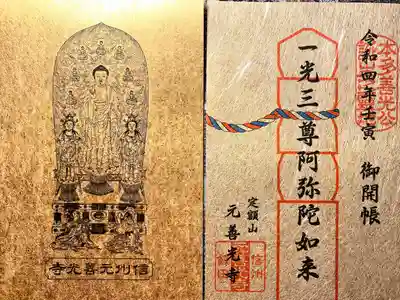 信州元善光寺
本多善光公
令和四年壬寅 御開帳
一光三尊阿弥陀如来
定額山
元善光寺
信州
飯田